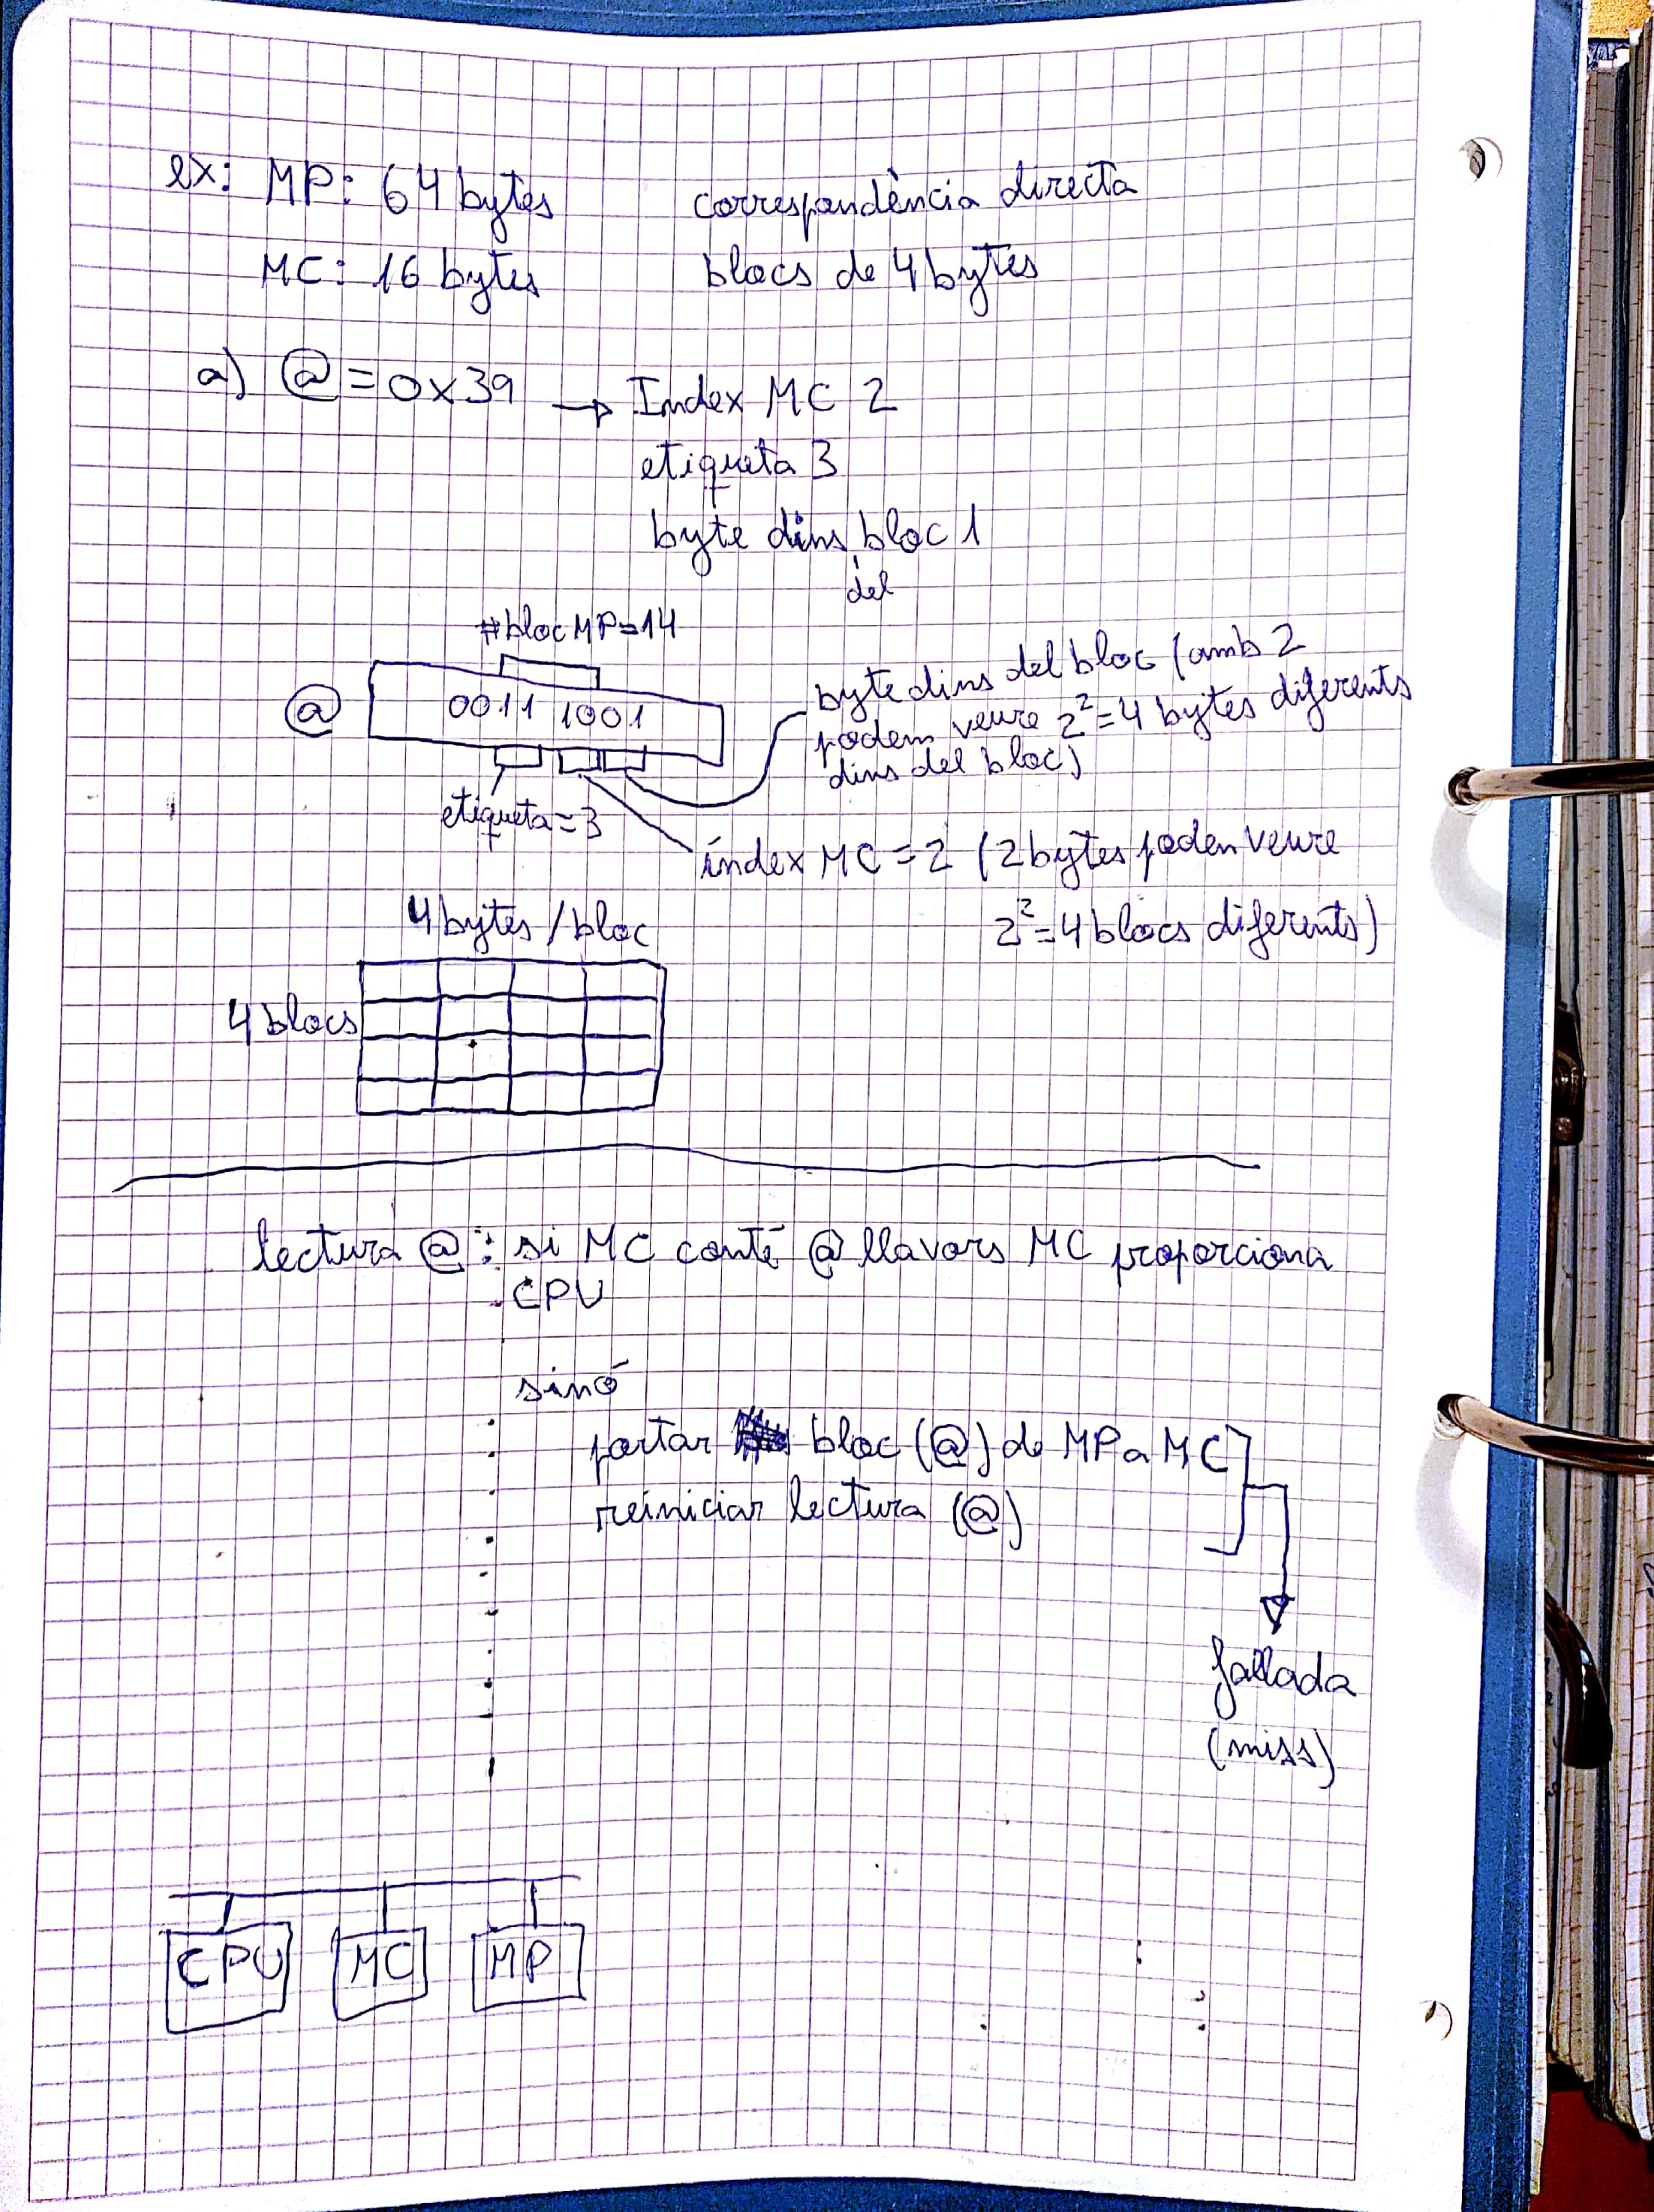 ex: MP: 64 bytes correspondència directa
MC: 16 bytes blocs de 4 bytes
a) @ = 0x39 → Index MC 2
etiqueta 3
byte dins bloc 1
del
#bloc MP=14
@ 0011 1001
byte dins del bloc (amb 2
podem veure 2²=4 bytes diferents
dins del bloc)
etiqueta=3
índex MC = 2 (2 bytes poden veure
2²=4 blocs diferents)
4 bytes/bloc
4 blocs
lectura @: si MC conté @ llavors MC proporciona
CPU
sinó
portar bloc (@) de MP a MC
reiniciar lectura (@)
fallada
(miss)
CPU MC MP